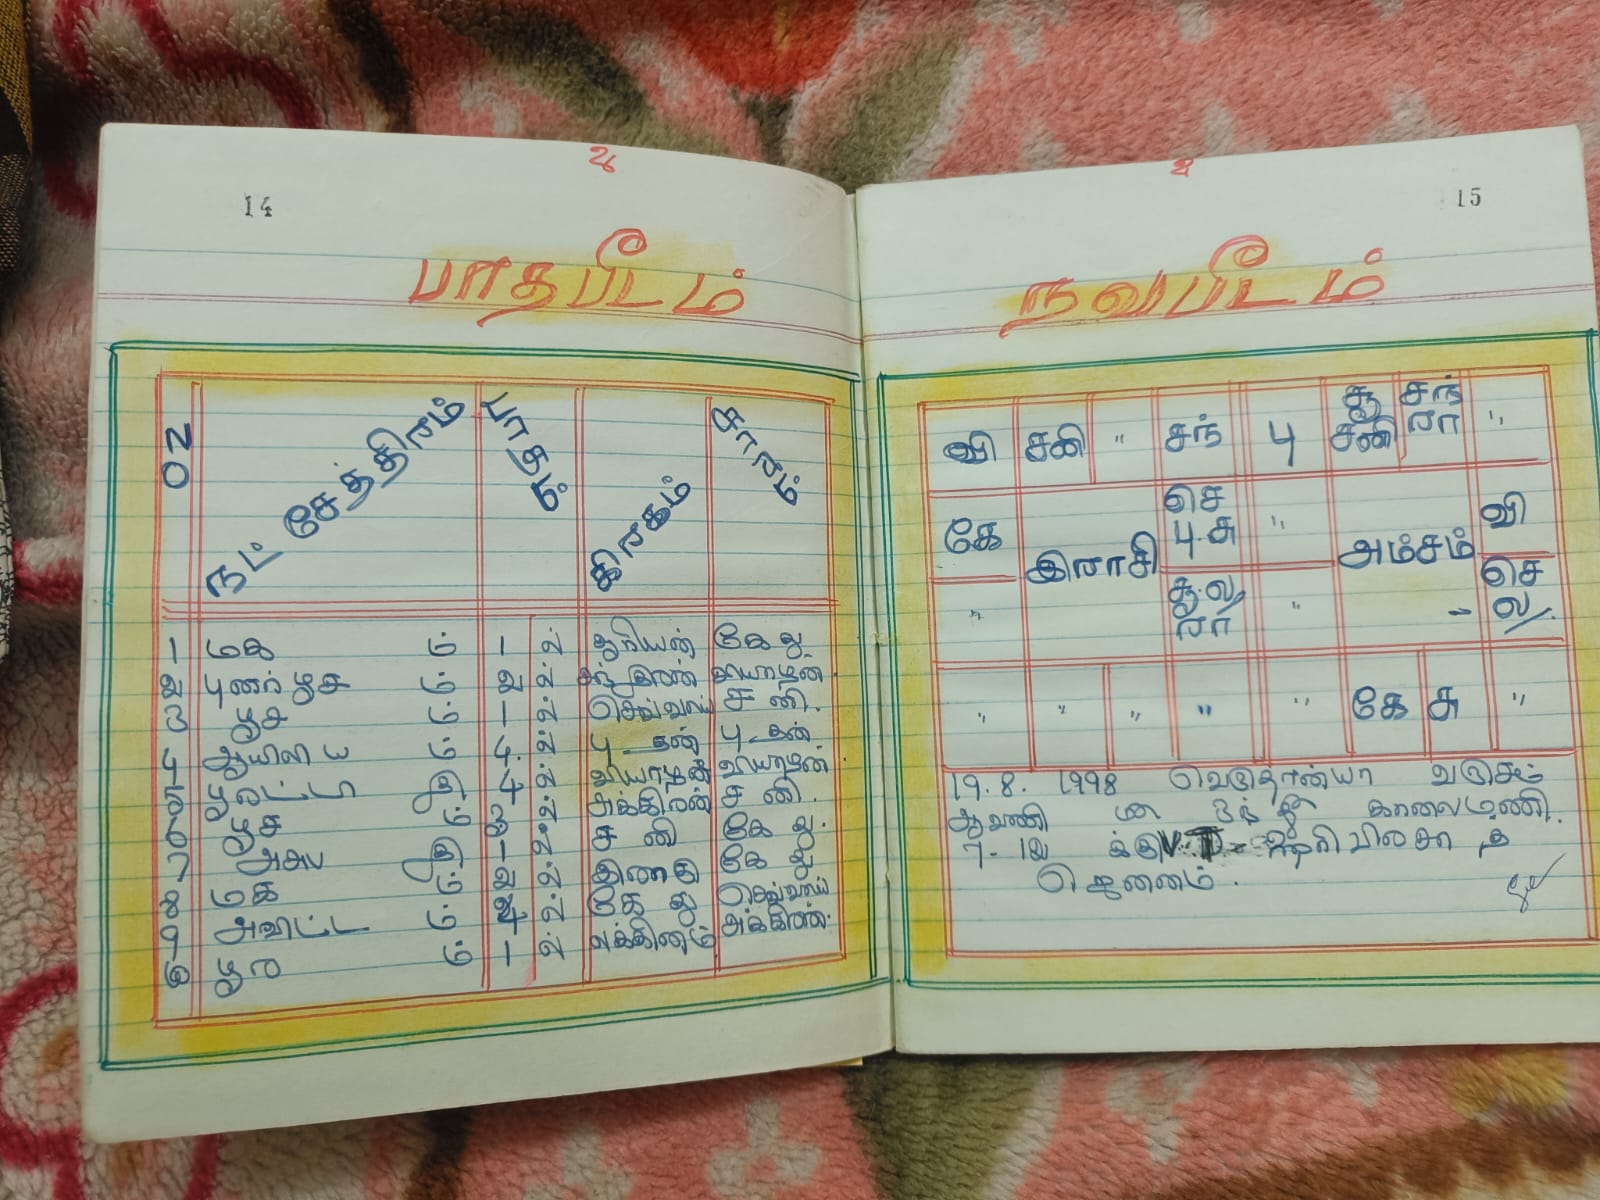 உ
14
பாதபீடம்
No நட்சேத்திரம் பாதம் கிரகம் சாரம்
1 மக ம் 1 ல் சூரியன் கேது
2 புனர்பூச ம் 2 ல் சந்திரன் வியாழன்
3 பூச ம் 1 ல் செவ்வாய் சனி
4 ஆயிலிய ம் 4 ல் புதன் புதன்
5 பூரட்டா தி 4 ல் வியாழன் வியாழன்
6 பூச ம் 3 ல் சுக்கிரன் சனி
7 அசுப தி 1 ல் சனி கேது
8 மக ம் 2 ல் இராகு கேது
9 அவிட்ட ம் 4 ல் கேது செவ்வாய்
10 பூர ம் 1 ல் லக்கினம் சுக்கிரன்
உ
15
நவபீடம்
வி சனி " சந் பு சூ சனி சந் ரா "
கே இராசி செ பு.சு " அம்சம் வி
" சூ.ல/ ரா " செ ல/.
" " " " " கே சு "
19.8.1998 வெகுதான்யா வருசம்
ஆவணி காலை மணி
7-12 க்கு
ஜெனனம்.